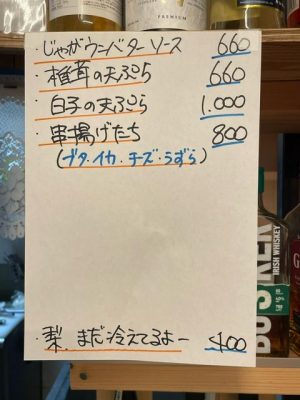 PREMIUM
・じゃがウニバターソース 660
・椎茸の天ぷら 660
・白子の天ぷら 1.000
・串揚げたち 800
(ブタ・イカ・チーズ・うずら)
・梨、まだ冷えてるよー 400
IRISH WHISKEY